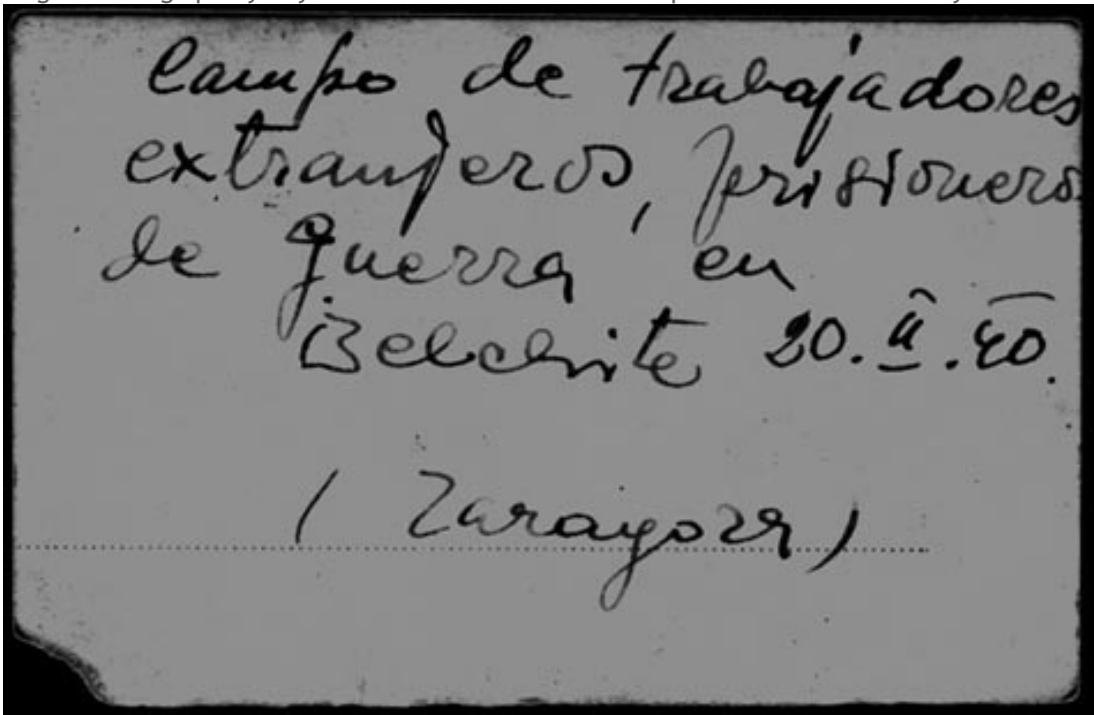 Campo de trabajadores
extranjeros, prisioneros
de guerra en
Belchite 20.II.40.
(Zaragoza)